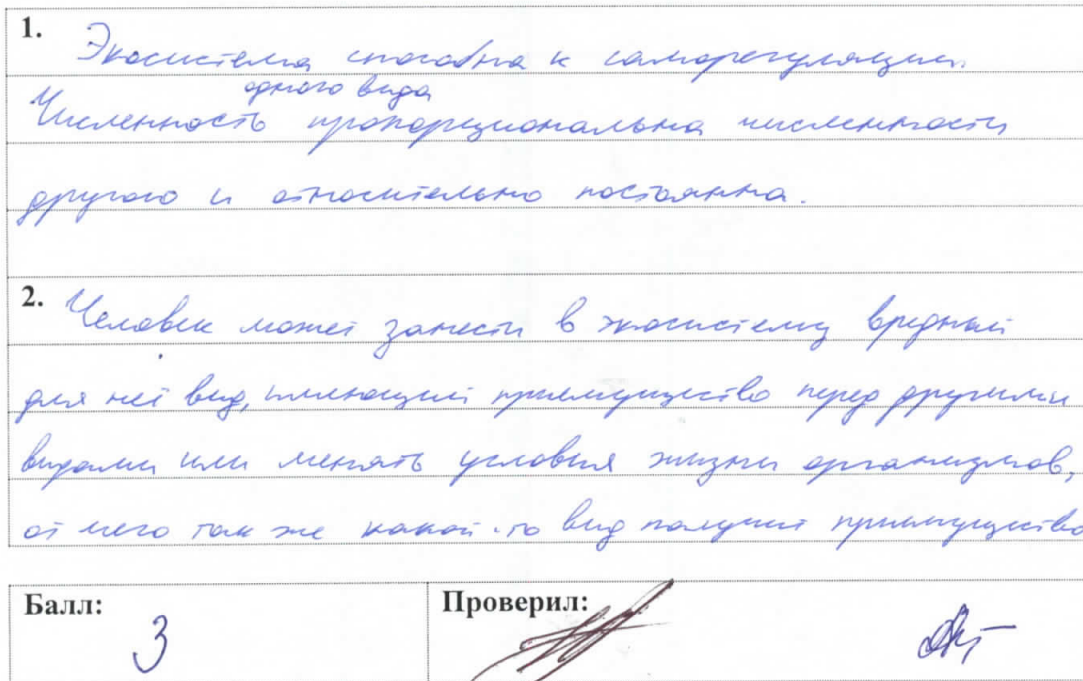 1.
Экосистема способна к саморегуляции.
одного вида
Численность пропорциональна численности
другого и относительно постоянна.
2. Человек может занести в экосистему вредный
для неё вид, имеющий приемущество перед другими
видами или менять условия жизни организмов,
от чего так же какой-то вид получит приемущество
Балл: 3 Проверил: